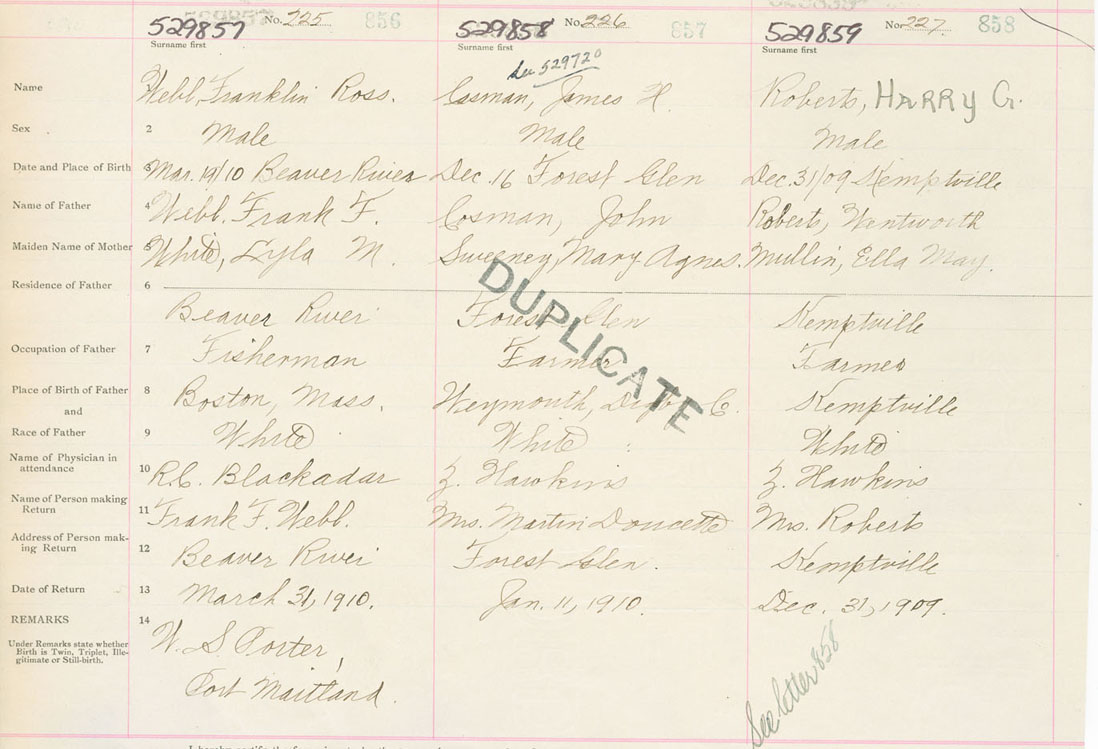 529857 No. 225 856 529858 No. 226 857 529859 No. 227 858
Surname first Surname first Surname first
See 529720
Name Webb, Franklin Ross. Cosman, James H. Roberts, HARRY G.
Sex 2 Male Male Male
Date and Place of Birth 3 Mar. 19/10 Beaver River Dec. 16 Forest Glen Dec. 31/09 Kemptville
Name of Father 4 Webb, Frank F. Cosman, John Roberts, Wentworth
Maiden Name of Mother 5 White, Lyla M. Sweeney, Mary Agnes. Mullin, Ella May.
Residence of Father 6
Beaver River Forest Glen Kemptville
DUPLICATE
Occupation of Father 7 Fisherman Farmer Farmer
Place of Birth of Father 8 Boston, Mass. Weymouth, Digby C. Kemptville
and
Race of Father 9 White White White
Name of Physician in
attendance 10 R.C. Blackadar Z. Hawkins Z. Hawkins
Name of Person making
Return 11 Frank F. Webb. Mrs. Martin Doucette Mrs. Roberts
Address of Person mak-
ing Return 12 Beaver River Forest Glen. Kemptville
Date of Return 13 March 31, 1910. Jan. 11, 1910. Dec. 31, 1909.
REMARKS 14
Under Remarks state whether
Birth is Twin, Triplet, Ille-
gitimate or Still-birth.
W. S. Porter,
Port Maitland.
See letter 858